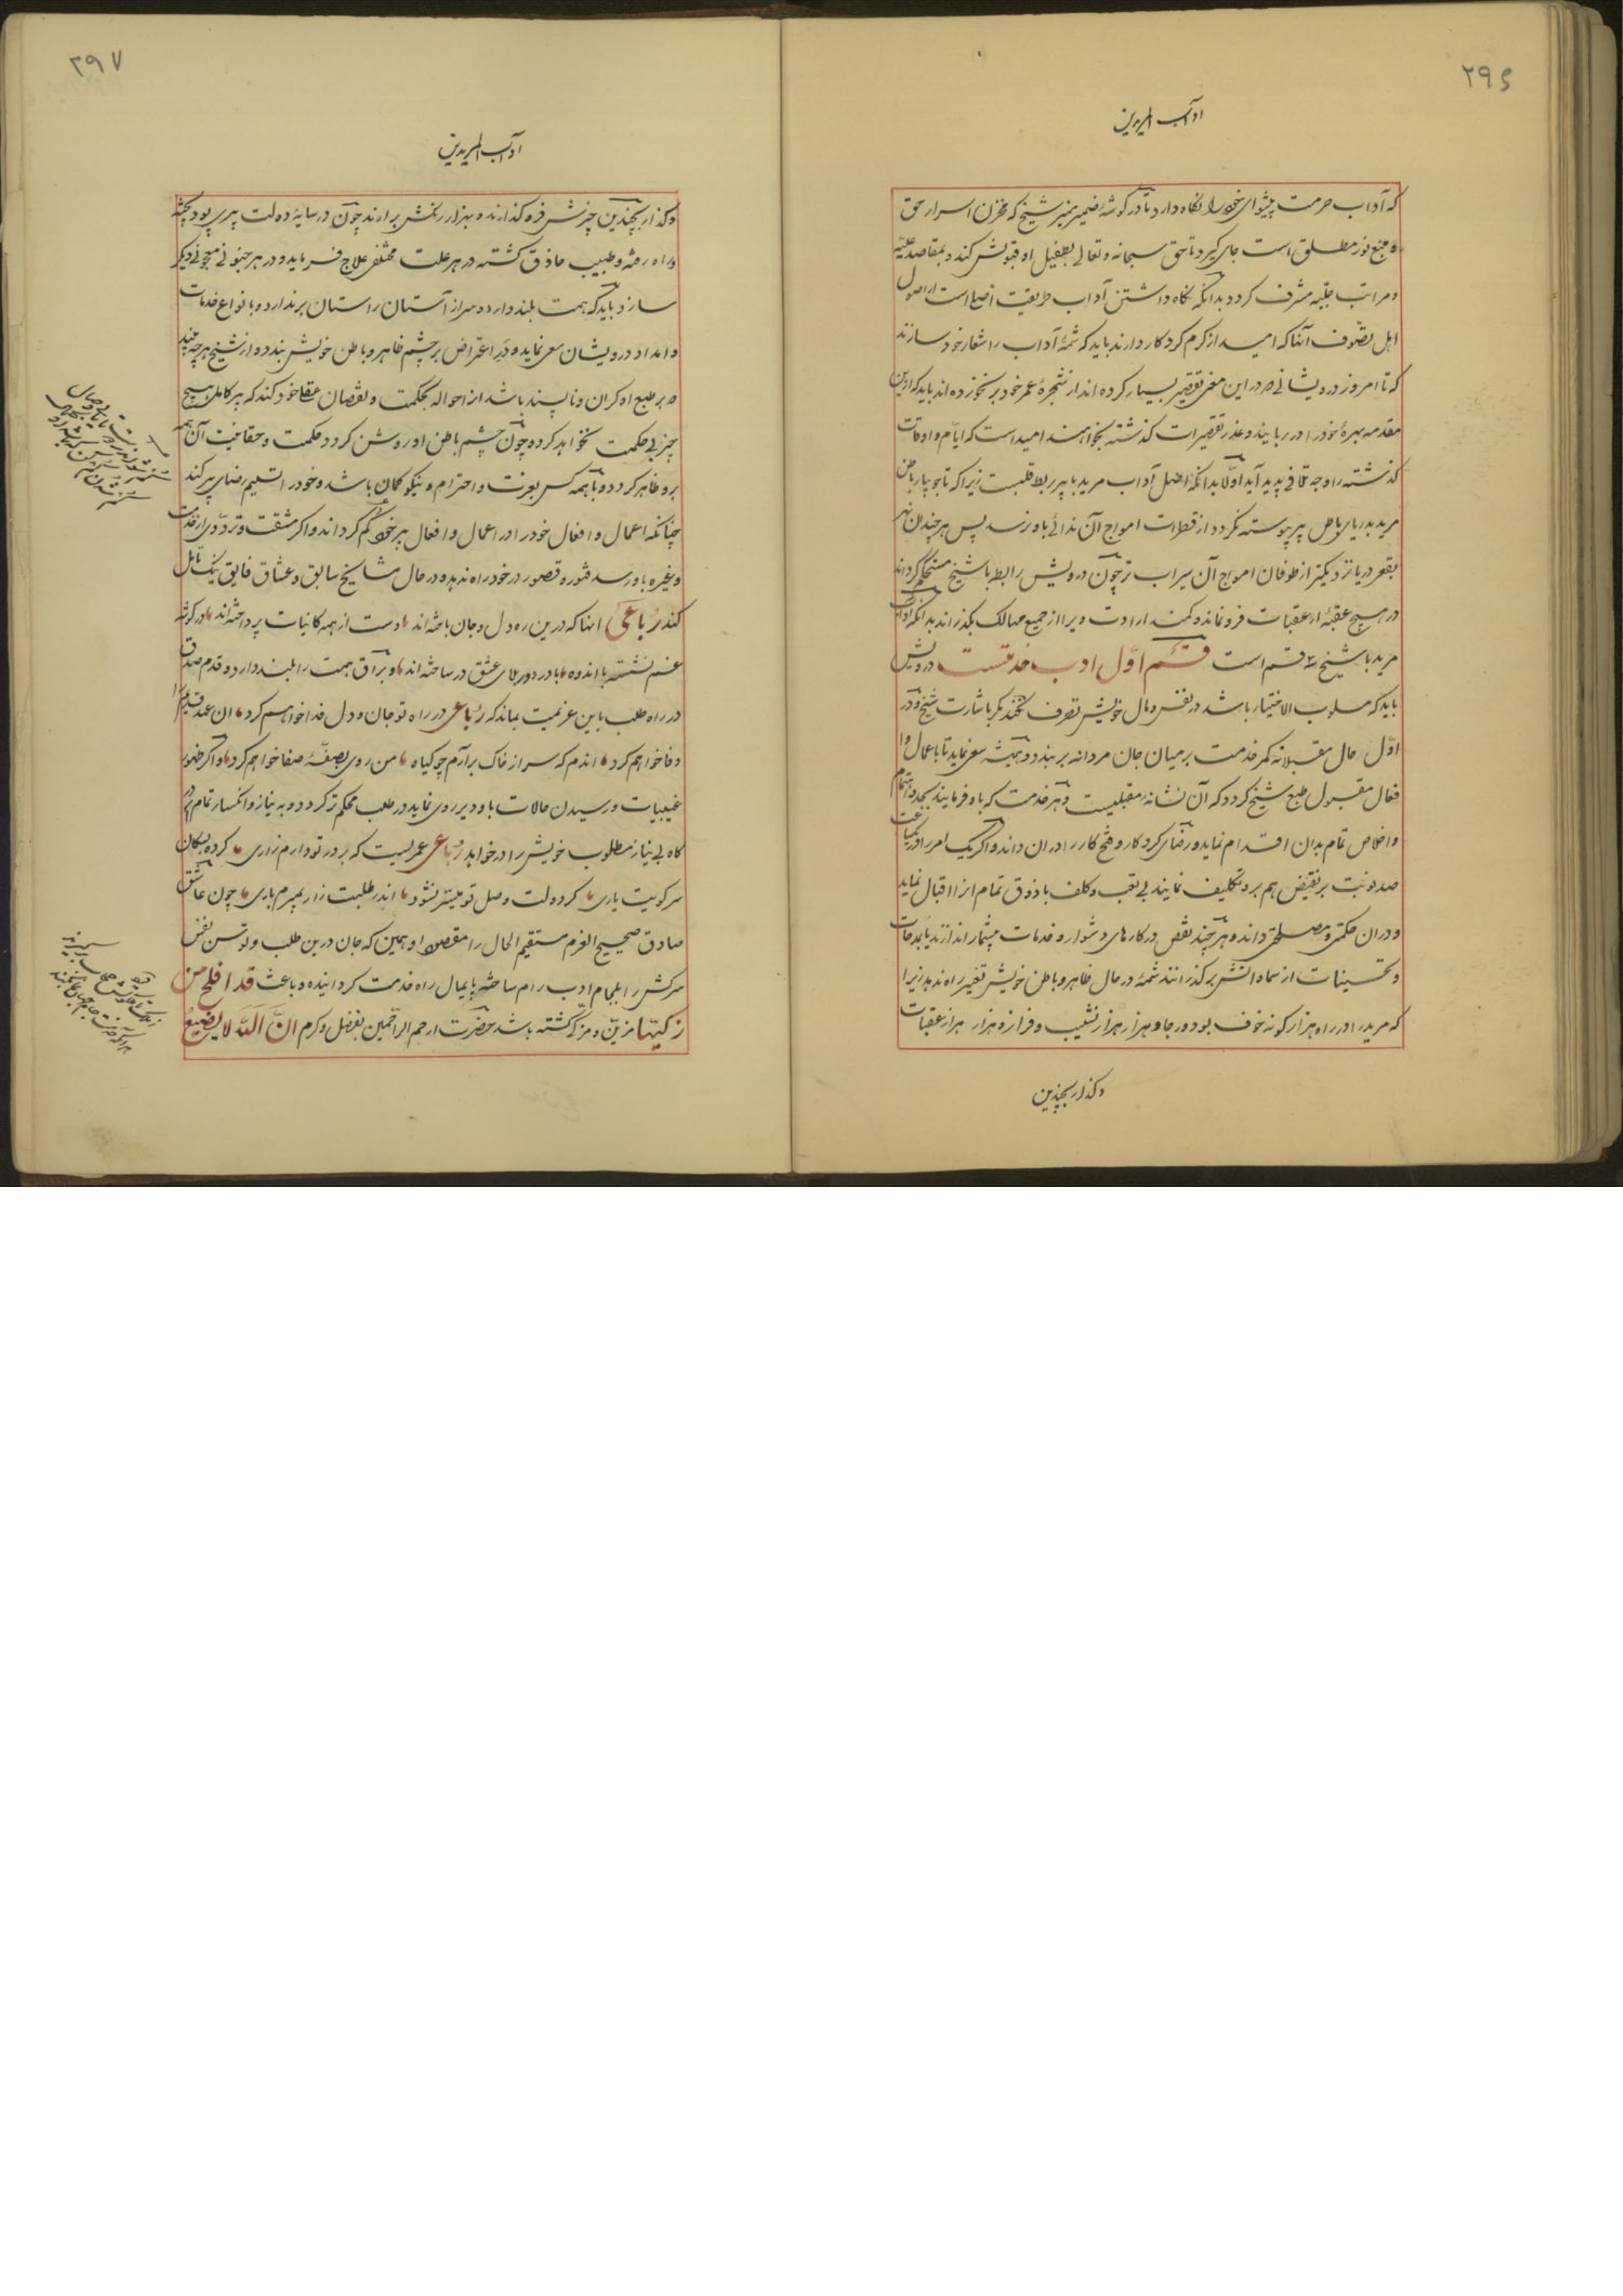 ۲۹۶
آداب المریدین
که آداب حرمت پیشوای خود را نگاه دارد تا در گوشهٔ ضمیر منیر شیخ که مخزن اسرار حق
و منبع نور مطلق است جای گیرد تا حق سبحانه و تعالی بطفیل او قبولش کند و بمقاصد علیّه
و مراتب جلیّه مشرف گردد بدانکه نگاه داشتن آداب طریقت از اصول
اهل تصوّف آنها که امید از کرم کردکار دارند باید که شمهٔ آداب را شعار خود سازند
که تا امروز درویشانی که در این معنی تقصیر بسیار کرده اند از شجرهٔ عمر خود بر نخورده اند باید که ازین
مقدمه بهرهٔ خود را در ربایند و عذر تقصیرات گذشته بخواهند امید است که ایّام و اوقات
گذشته را وجه تلافی پدید آید اوّلا بدانکه اصل آداب مرید با پیر ربط قلبست زیرا که تا جویبار باطن
مرید بدریای باطن پیر پیوسته نگردد از قطرات امواج آن ندائی باو نرسد پس هر چند آن نهر
بقعر دریا نزدیکتر از طوفان امواج آن سیراب تر چون درویش رابطه با شیخ مستحکم گرداند
در هیچ عقبهٔ از عقبات فرو نماند و کمند ارادت ویرا از جمیع مهالک بگذراند بدانکه آداب
مرید با شیخ سه قسم است قسم اوّل ادب خدمتست درویش
باید که مسلوب الاختیار باشد در نفس و مال خویش تصرف نکند مگر باشارت شیخ و در
اوّل حال مقبلانه کمر خدمت بر میان جان مردانه بر بندد و همیشه سعی نماید تا باعمال و ا
فعال مقبول طبع شیخ گردد که آن نشانهٔ مقبلیست و هر خدمت که باو فرمایند بجد و اهتمام
و اخلاص تمام بدان اقدام نماید و رضای کردکار و فتح کار را در آن داند و اگر یک امر را در یکساعت
صد نوبت بر نقیض هم برو تکلیف نمایند بی تعب و کلف با ذوق تمام از آن اقبال نماید
و در آن حکمتی و مصلحتی داند و هر چند نقص در کارهای دشوار و خدمات بیشمار اندازند یا بمدحات
و تحسینات از سماواتش برگذرانند شمهٔ در حال ظاهر و باطن خویش تغییر راه ندهد زیرا
که مرید را در راه هزار گونه خوف بود و رجا و هزار هزار نشیب و فراز و هزار هزار عقبات
و گذار بچندین
۲۹۷
آداب المریدین
و گذار بچندین چیزش فرو گذارند و بهزار رنگش برآرند چون در سایهٔ دولت پیری بود پخته
و راه رفته و طبیب حاذق گشته در هر علت مختلفی علاج فرماید و در هر جنونی معجونی دیگر
سازد باید که همت بلند دارد و سر از آستان راستان بر ندارد و بانواع خدمات
و امداد درویشان سعی نماید و در اعتراض بر چشم ظاهر و باطن خویش بندد و از شیخ هر چه بیند
که بر طبع او گران و ناپسند باشد از احوال بحکمت و نقصان عقل خود کند که پیر کامل هیچ
چیز بی حکمت نخواهد کرد و چون چشم باطن او روشن گردد حکمت و حقانیت آن همه
برو ظاهر گردد و با همه کس بعزت و احترام و نیکو گمان باشد و خود را تسلیم رضای پیر کند
چنانکه اعمال و افعال خود را در اعمال و افعال پیر خود گم گرداند و اگر مشقت و تردّدی از خدمت
و غیره باو رسد فتور و قصور در خود راه ندهد و در حال مشایخ سابق و عشاق فایق نیک تأمل
کند رباعی آنها که درین ره دل و جان باخته اند دست از همه کاینات پرداخته اند در گوشهٔ
غم نشسته با اندوه با درد و بلای عشق در ساخته اند و براق همت را بلند دارد و قدم صدق
در راه طلب باین عزیمت بماند که رباعی در راه تو جان و دل فدا خواهم کرد آن عهد قدیم را
وفا خواهم کرد آندم که سر از خاک برآرم چو گیاه من روی بصفّهٔ صفا خواهم کرد و اگر ظهور
غیبیات و رسیدن حالات باو دیر روی نماید در طلب محکم تر گردد و به نیاز و انکسار تمام از در
گاه بی نیاز مطلوب خویش را در خواهد رباعی عمریست که بر در تو دارم زاری کرده بسگان
سر کویت یاری گر دولت وصل تو میسّر نشود اندر طلبت زار بمیرم باری چون عاشق
صادق صحیح العزم مستقیم الحال را مقصود او همین که جان درین طلب و توسن نفس
سرکش را بلجام ادب رام ساخته پایمال راه خدمت گردانیده و باعث قد افلح من
زکیها مزیّن و مزکّی گشته باشد حضرت ارحم الراحمین بفضل و کرم انّ الله لا یضیع